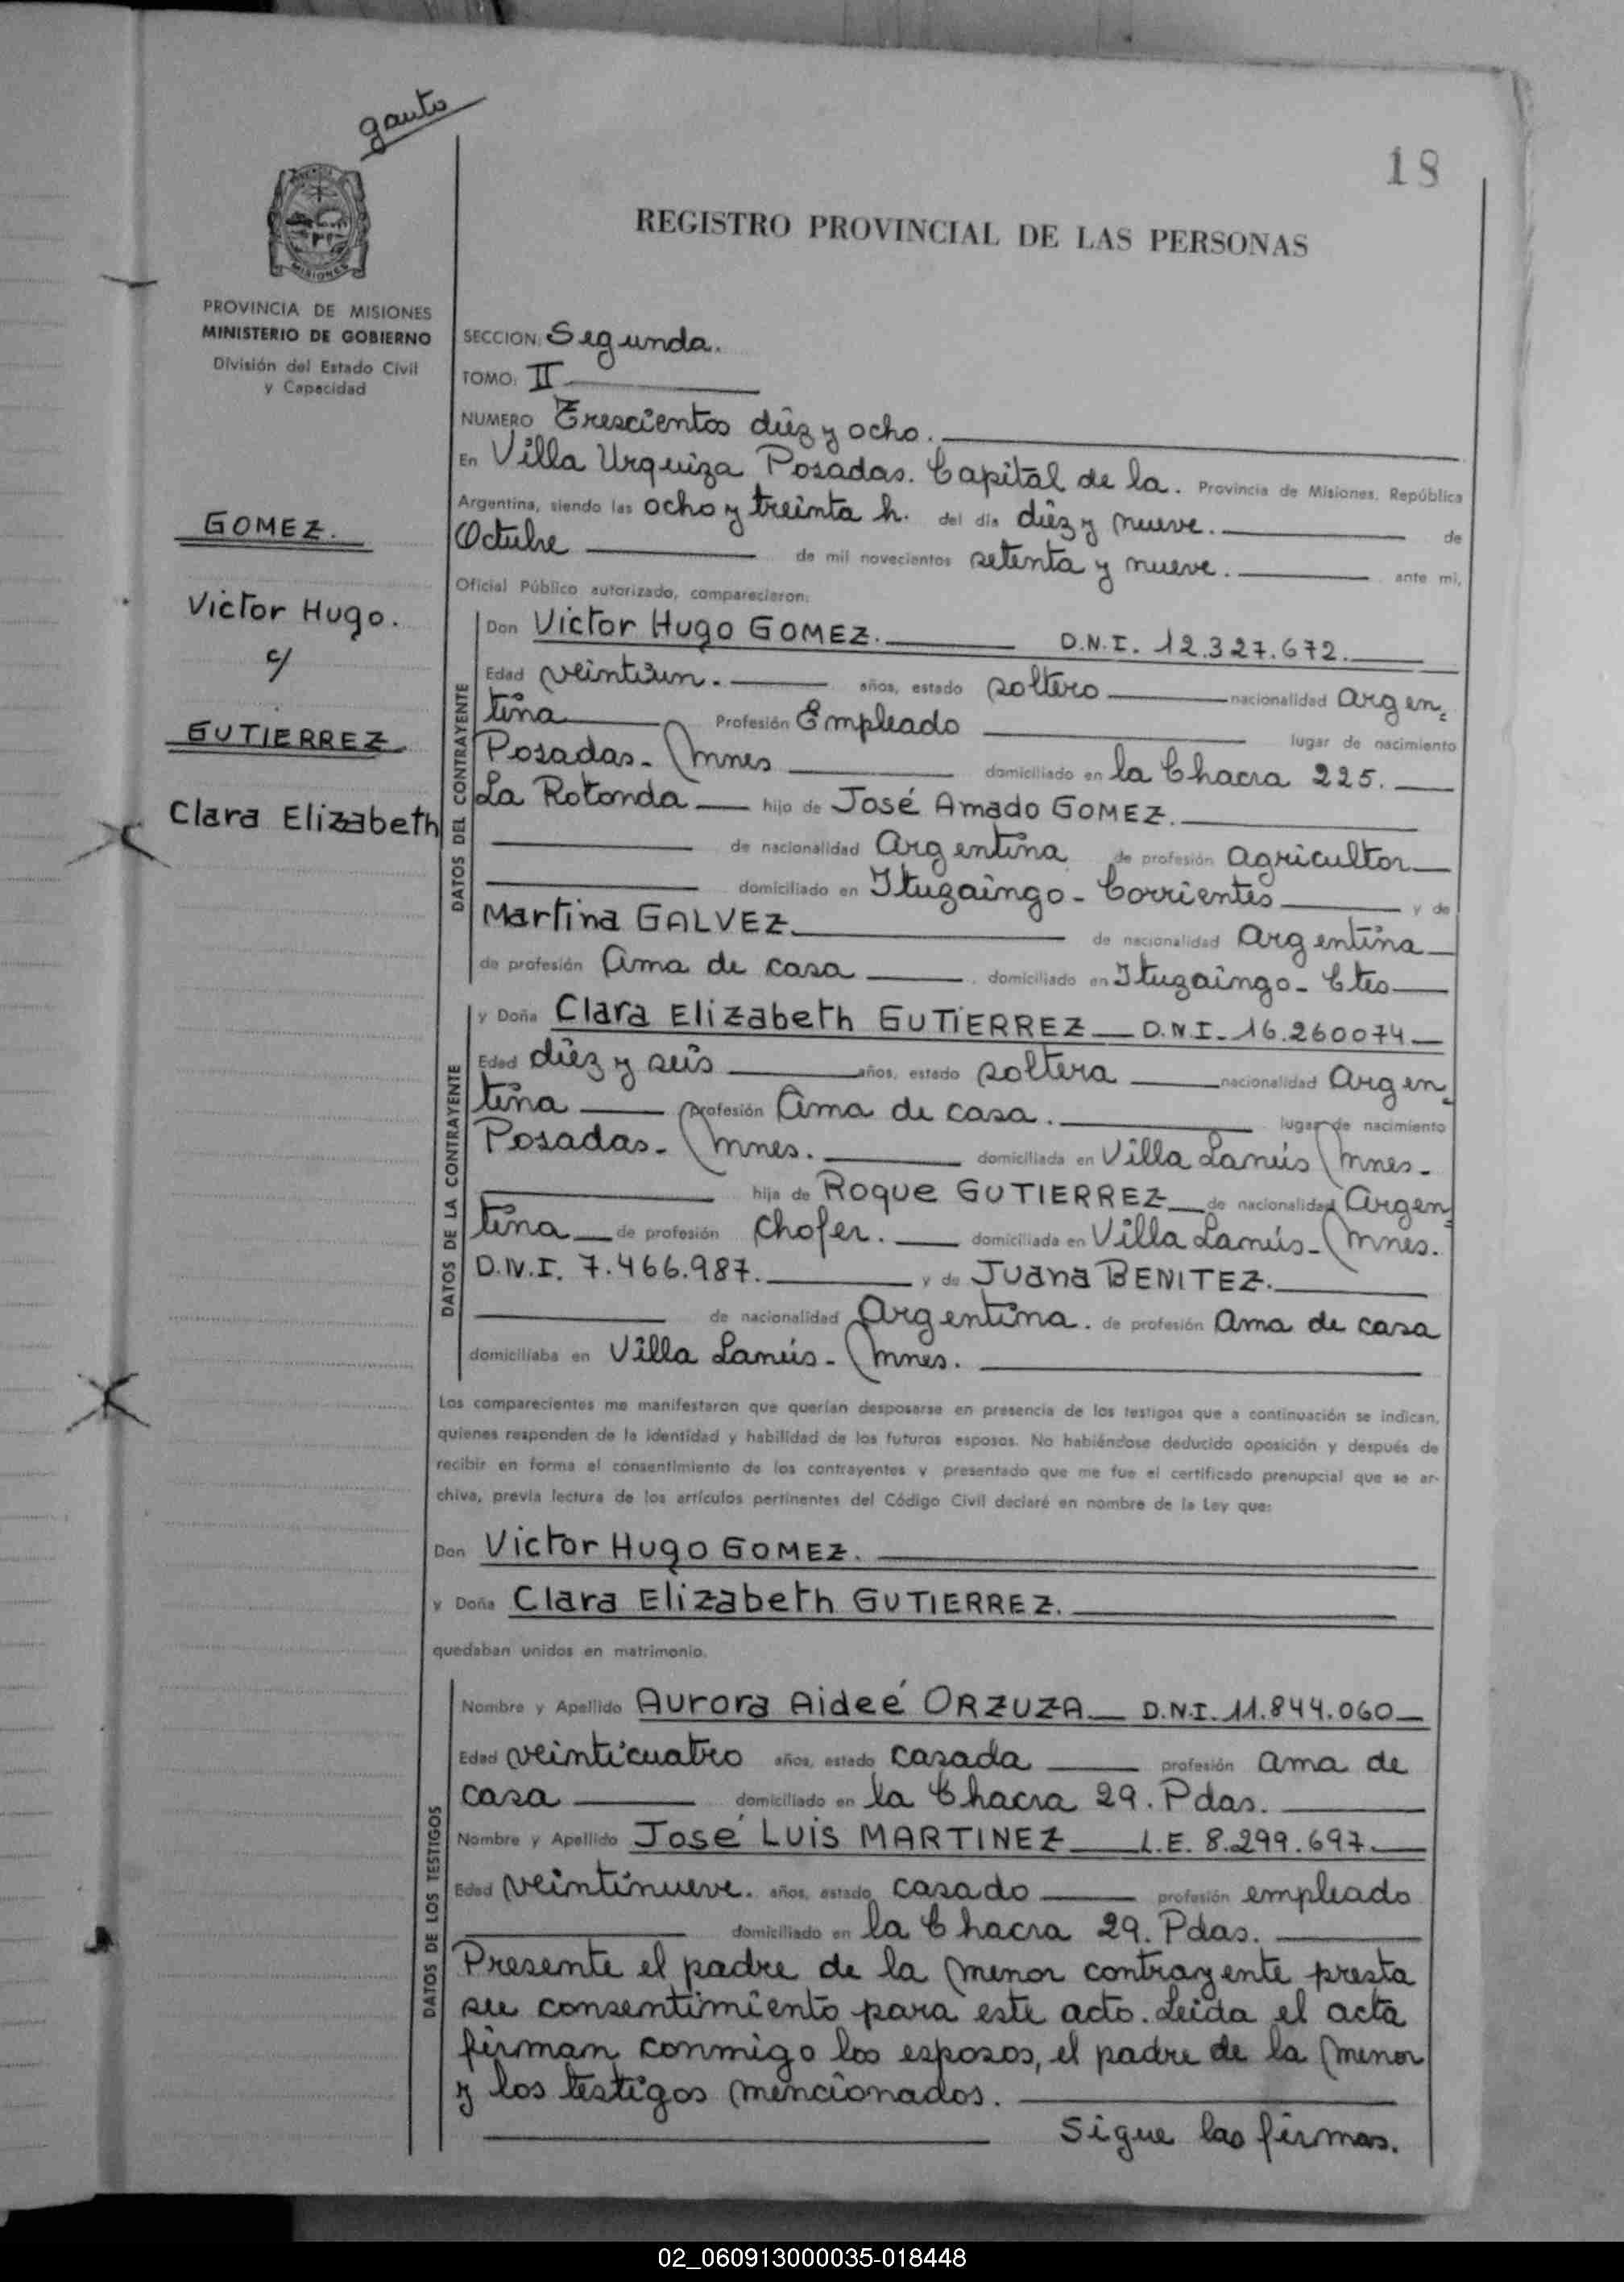 gauto
18
MISIONES
REGISTRO PROVINCIAL DE LAS PERSONAS
PROVINCIA DE MISIONES
MINISTERIO DE GOBIERNO
División del Estado Civil
y Capacidad
GOMEZ.
Victor Hugo.
c/
GUTIERREZ
Clara Elizabeth
SECCION: Segunda.
TOMO: II
NUMERO Trescientos diez y ocho.
En Villa Urquiza Posadas. Capital de la. Provincia de Misiones, República
Argentina, siendo las ocho y treinta h. del día diez y nueve. de
Octubre de mil novecientos setenta y nueve. ante mi,
Oficial Público autorizado, comparecieron:
DATOS DEL CONTRAYENTE
Don Victor Hugo GOMEZ. D.N.I. 12.327.672.
Edad veintiun. años, estado soltero nacionalidad argen=
tina Profesión Empleado lugar de nacimiento
Posadas - Mnes domiciliado en la Chacra 225.
La Rotonda hijo de José Amado GOMEZ.
de nacionalidad Argentina de profesión agricultor
domiciliado en Ituzaingo - Corrientes y de
Martina GALVEZ. de nacionalidad argentina
de profesión Ama de casa domiciliado en Ituzaingo - Ctes
DATOS DE LA CONTRAYENTE
y Doña Clara Elizabeth GUTIERREZ D.N.I. 16.260074
Edad diez y seis años, estado soltera nacionalidad Argen=
tina profesión Ama de casa. lugar de nacimiento
Posadas - Mnes. domiciliada en Villa Lanús Mnes -
hija de Roque GUTIERREZ de nacionalidad Argen=
tina de profesión chofer. domiciliada en Villa Lanús - Mnes.
D.N.I. 7.466.987. y de Juana BENITEZ.
de nacionalidad Argentina. de profesión Ama de casa
domiciliaba en Villa Lanús - Mnes.
Los comparecientes me manifestaron que querían desposarse en presencia de los testigos que a continuación se indican,
quienes responden de la identidad y habilidad de los futuros esposos. No habiéndose deducido oposición y después de
recibir en forma el consentimiento de los contrayentes y presentado que me fue el certificado prenupcial que se ar-
chiva, previa lectura de los artículos pertinentes del Código Civil declaré en nombre de la Ley que:
Don Victor Hugo GOMEZ.
y Doña Clara Elizabeth GUTIERREZ.
quedaban unidos en matrimonio.
DATOS DE LOS TESTIGOS
Nombre y Apellido Aurora Aideé ORZUZA D.N.I. 11.844.060
Edad veinticuatro años, estado casada profesión ama de
casa domiciliado en la Chacra 29. Pdas.
Nombre y Apellido José Luis MARTINEZ L.E. 8.299.697.
Edad veintinueve. años, estado casado profesión empleado
domiciliado en la Chacra 29. Pdas.
Presente el padre de la menor contrayente presta
su consentimiento para este acto. Leida el acta
firman conmigo los esposos, el padre de la menor
y los testigos mencionados.
Sigue las firmas.
02_060913000035-018448